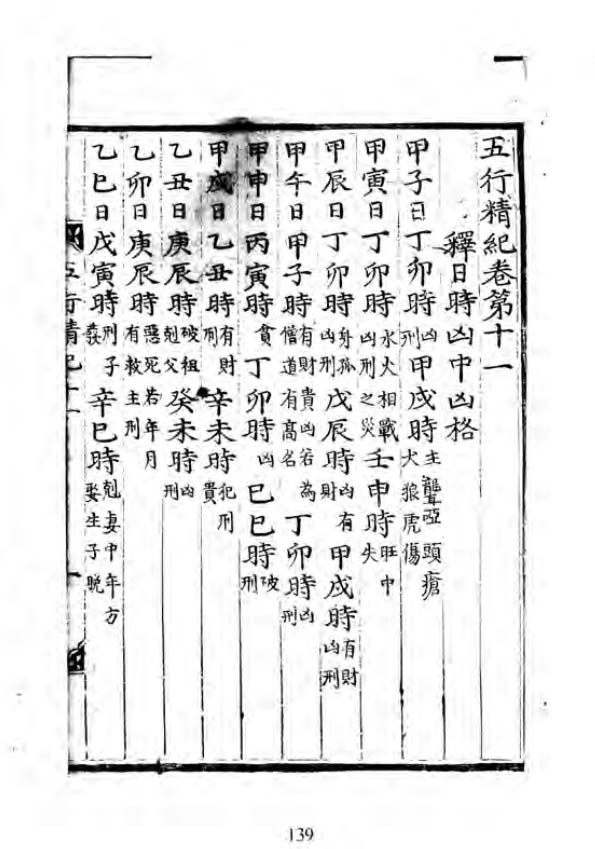 五行精紀卷第十一
釋日時凶中凶格
甲子日丁卯時凶刑甲戌時主聾啞頭瘡犬狼虎傷
甲寅日丁卯時水火相戰凶刑之災壬申時旺中失
甲辰日丁卯時身孤凶刑戊辰時凶有財甲戌時有財凶刑
甲午日甲子時有財貴凶若為僧道有高名丁卯時凶刑
甲申日丙寅時貪丁卯時凶己巳時破刑
甲戌日乙丑時有財刑辛未時犯刑貴
乙丑日庚辰時破祖剋父癸未時凶刑
乙卯日庚辰時惡死若年月有救主刑
乙巳日戊寅時刑子辛巳時剋妻中年方娶生子晚
139